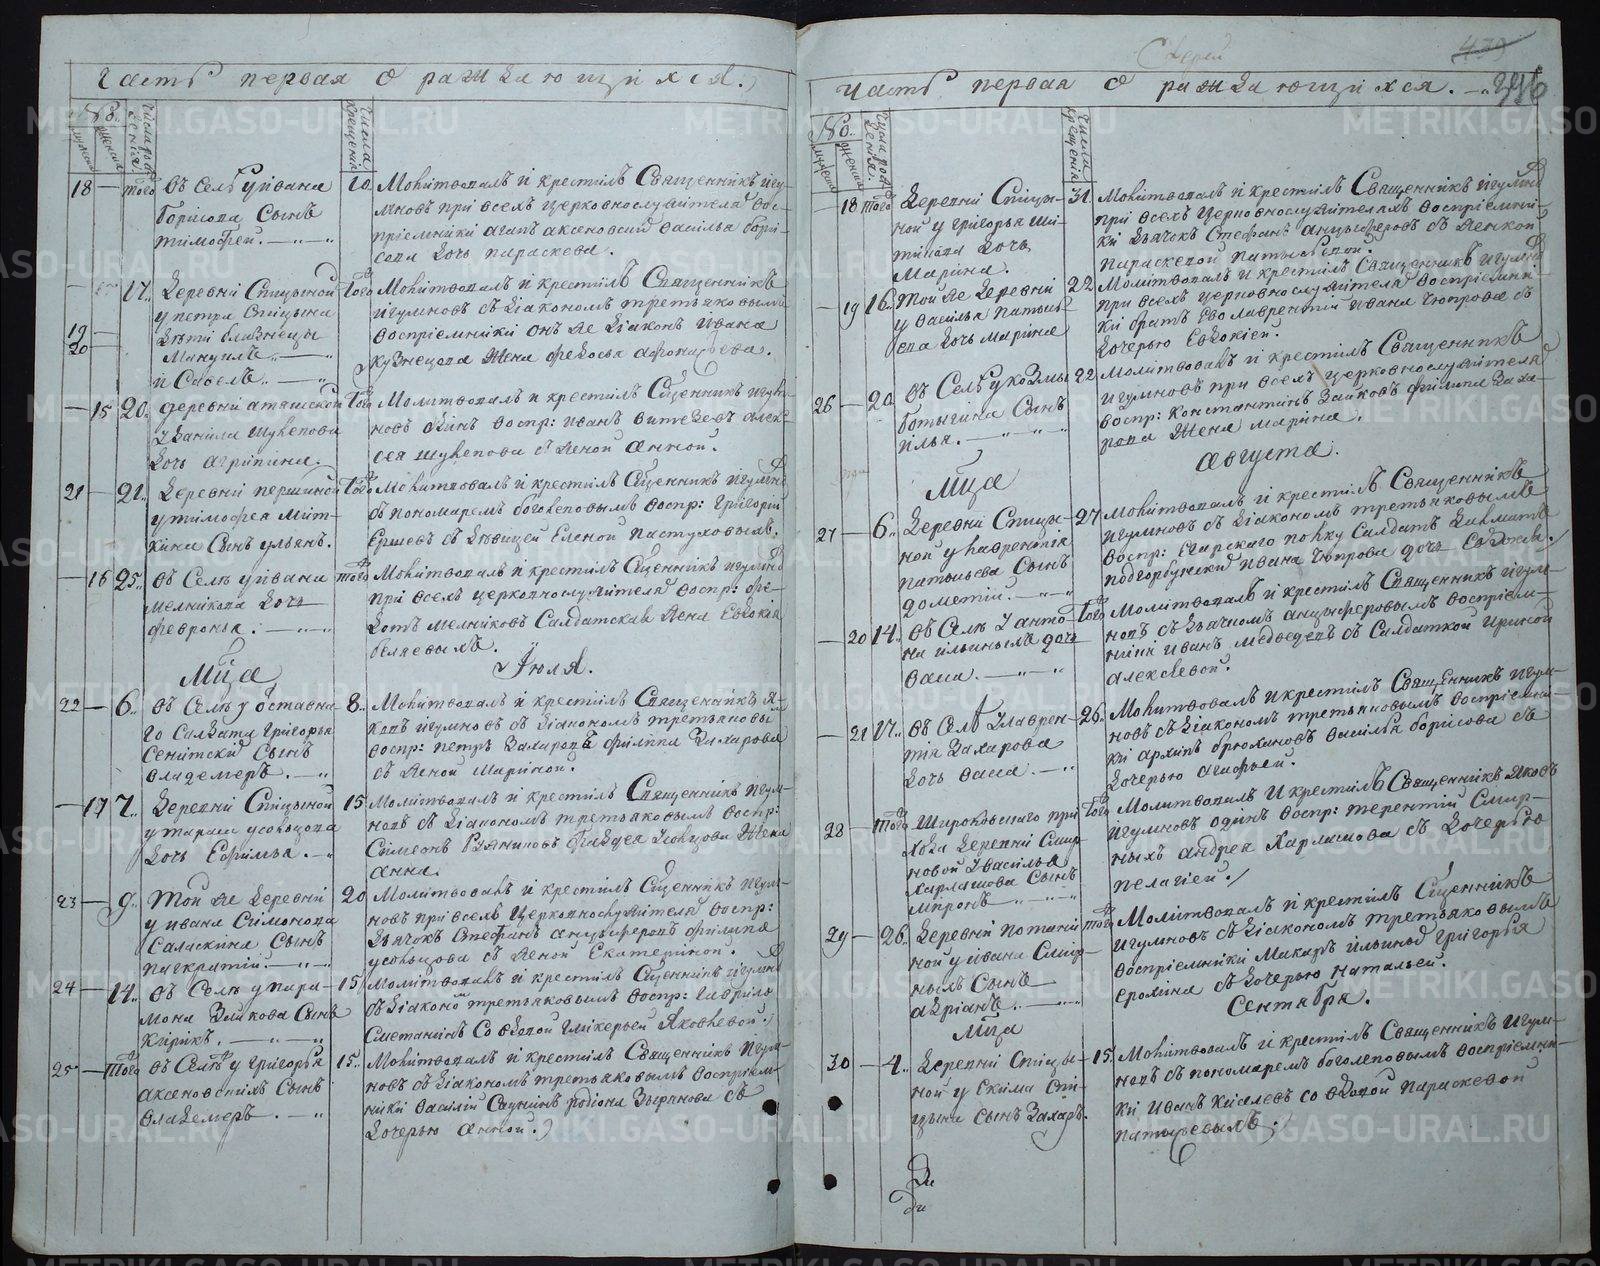 Часть первая о раждающихся.
№
мужеска
женска
Числа рождения
Числа крещения
18 — того
въ Селѣ у ивана
борисова Сынъ
тимофей.
10
Молитвовалъ и крестилъ Священникъ игу-
мновъ при всехъ церковнослужителяхъ вос-
приемники агапъ аксеновский василья бори-
сова дочь параскева.
17.
19
20
деревни Спицыной
у петра Спицына
дѣти близнецы
Мануилъ
и Савелъ.
Того
Молитвовалъ и крестилъ Священникъ
игумновъ съ дiакономъ третьяковымъ
восприемники онъ же дiаконъ ивана
кузнецова жена федосья афонасьева.
— 15 20.
деревни
у данила шулепова
дочь агрипина.
Того
Молитвовалъ и крестилъ Сщенникъ игум-
новъ одинъ воспр: иванъ алек-
сея шулепова съ женой анной.
21 — 21.
деревни першиной
у тимофея Мит-
кина Сынъ ульянъ.
Того
Молитвовалъ и крестилъ Сщенникъ игумно
съ пономаремъ боголеповымъ воспр: григорий
Ершевъ съ девицей Еленой пастуховыхъ.
— 16 25.
въ Селѣ у ивана
мелникова дочь
февронья.
того
Молитвовалъ и крестилъ Сщенникъ игумно
при всехъ церковнослужителя воспр: фе-
дотъ мелниковъ Салдатская жена Евдокия
беляевыхъ.
Мца
Июля.
22 — 6.
въ Селѣ у отставна-
го Салдата григорья
Сенитский Сынъ
владемеръ.
8.
Молитвовалъ и крестилъ Священникъ я-
ковъ игумновъ съ дiакономъ третьяковы
воспр: петръ Захаровъ филипа Захарова
съ женой Мариной.
— 17 7.
деревни Спицыной
у тараса усольцова
дочь Ефимья.
15
Молитвовалъ и крестилъ Священникъ игум-
новъ съ дiакономъ третьяковымъ воспр:
Симеонъ фадея усольцова жена
анна.
23 — 9.
Той же деревни
у ивана Симонова
Саласкина Сынъ
панкратий.
20
Молитвовалъ и крестилъ Сщенникъ игум-
новъ при всехъ церковнослужителя воспр:
дьячокъ Стефанъ анцыферовъ филипа
усольцова съ женой Екатериной.
24 — 14.
въ Селѣ у пара-
мона Зайкова Сынъ
Кирикъ.
15
Молитвовалъ и крестилъ Сщенникъ игумно
съ дiакономъ третьяковымъ воспр: гаврило
Сметанинъ Со вдовой гликерьей Яковлевой.
25 — того
въ Селѣ у григорья
аксеновскихъ Сынъ
владемеръ.
15.
Молитвовалъ и крестилъ Священникъ игум-
новъ съ дiакономъ третьяковымъ восприем-
ники василий родiона Зырянова съ
дочерью анной.
439
Часть первая о раждающихся.
№
мужеска
женска
Числа рождения
Числа крещения
— 18 того
деревни Спицы-
ной у григорья Ши-
дочь
Марина.
31.
Молитвовалъ и крестилъ Священникъ игумно
при всехъ церковнослужителяхъ восприемни-
ки дьячокъ Стефанъ анцыферовъ съ женкой
параскевой патысьевой.
— 19 16.
Той же деревни
у василья патысь-
ева дочь Марина
22
Молитвовалъ и крестилъ Священникъ игумно
при всехъ церковнослужителя восприемни-
ки братъ его лаврентий ивана Чюпрова съ
дочерью Евдокией.
26 — 20
въ Селѣ у козмы
ботыгина Сынъ
илья.
22
Молитвовалъ и крестилъ Священникъ
игумновъ при всехъ церковнослужителя
воспр: Константинъ Зайковъ филипа Заха-
рова жена марина.
Мца
августа.
27 — 6.
деревни Спицы-
ной у лаврентья
патысьева Сынъ
дометий.
27
Молитвовалъ и крестилъ Священникъ
игумновъ съ дiакономъ третьяковымъ
воспр: Егарскаго полку Салдатъ далматъ
подгорбунский ивана Чюпрова дочь Евдокья.
— 20 14.
въ Селѣ у анто-
на ильиныхъ дочь
васа.
Того
Молитвовалъ и крестилъ Священникъ игум-
новъ съ дьячкомъ анцыферовымъ восприем-
ники иванъ медведевъ съ Салдаткой Ириной
алексеевой.
— 21 17.
въ Селѣ у лаврен-
тия Захарова
дочь васа.
26.
Молитвовалъ и крестилъ Священникъ игум-
новъ съ дiакономъ третьяковымъ восприемни-
ки архипъ брюхановъ василья борисова съ
дочерью агафьей.
28 — того
Широковскаго при
хода деревни Смир-
новой у василья
Харлашова Сынъ
миронъ.
Того
Молитвовалъ и крестилъ Священникъ яковъ
игумновъ одинъ воспр: терентий Смир-
ныхъ андрея Харлашова съ дочерью
пелагией.
29 — 26.
деревни потани-
ной у ивана Смир-
ныхъ Сынъ
адрiанъ.
того
Молитвовалъ и крестилъ Сщенникъ
игумновъ съ дiакономъ третьяковымъ
восприемники Макаръ ильиныхъ григорья
еромина съ дочерью натальей.
Мца
Сентября.
30 — 4.
деревни Спицы-
ной у Екима Спи-
цына Сынъ Захаръ.
15.
Молитвовалъ и крестилъ Священникъ игум-
новъ съ пономаремъ боголеповымъ восприемни-
ки иванъ Киселевъ со вдовой параскевой
патысьевыхъ.